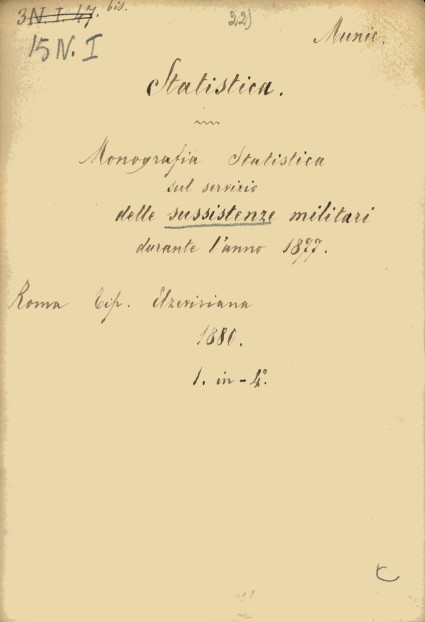 3 N. I. 47. bis.
22)
Munic.
15 N. I
Statistica.
Monografia Statistica
sul servizio
delle sussistenze militari
durante l'anno 1877.
Roma Tip. Elzeviriana
1880.
1. in-4º.
C